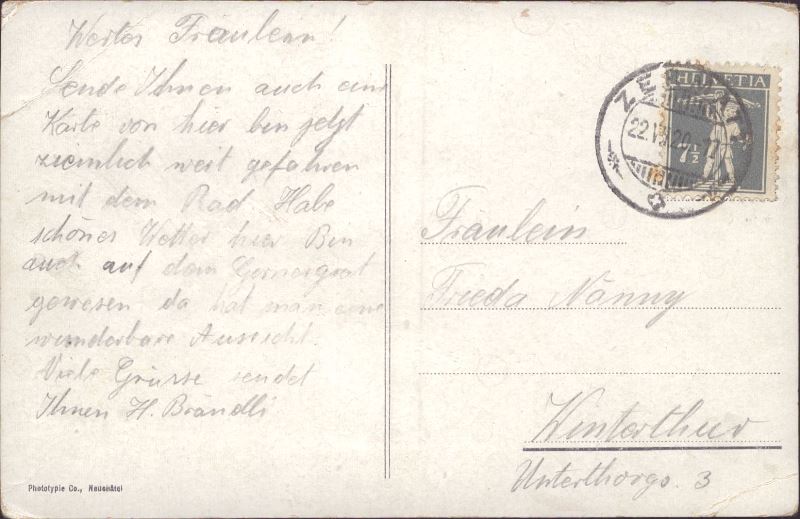 Wertes Fräulein!
Sende Ihnen auch eine
Karte von hier bin jetzt
ziemlich weit gefahren
mit dem Rad. Habe
schönes Wetter hier Bin
auch auf dem Gornergrat
gewesen da hat man eine
wunderbare Aussicht.
Viele Grüsse sendet
Ihnen H. Brändli
Phototypie Co., Neuchâtel
HELVETIA
7½
Fräulein
Frieda Nänny
Winterthur
Unterthorgs. 3